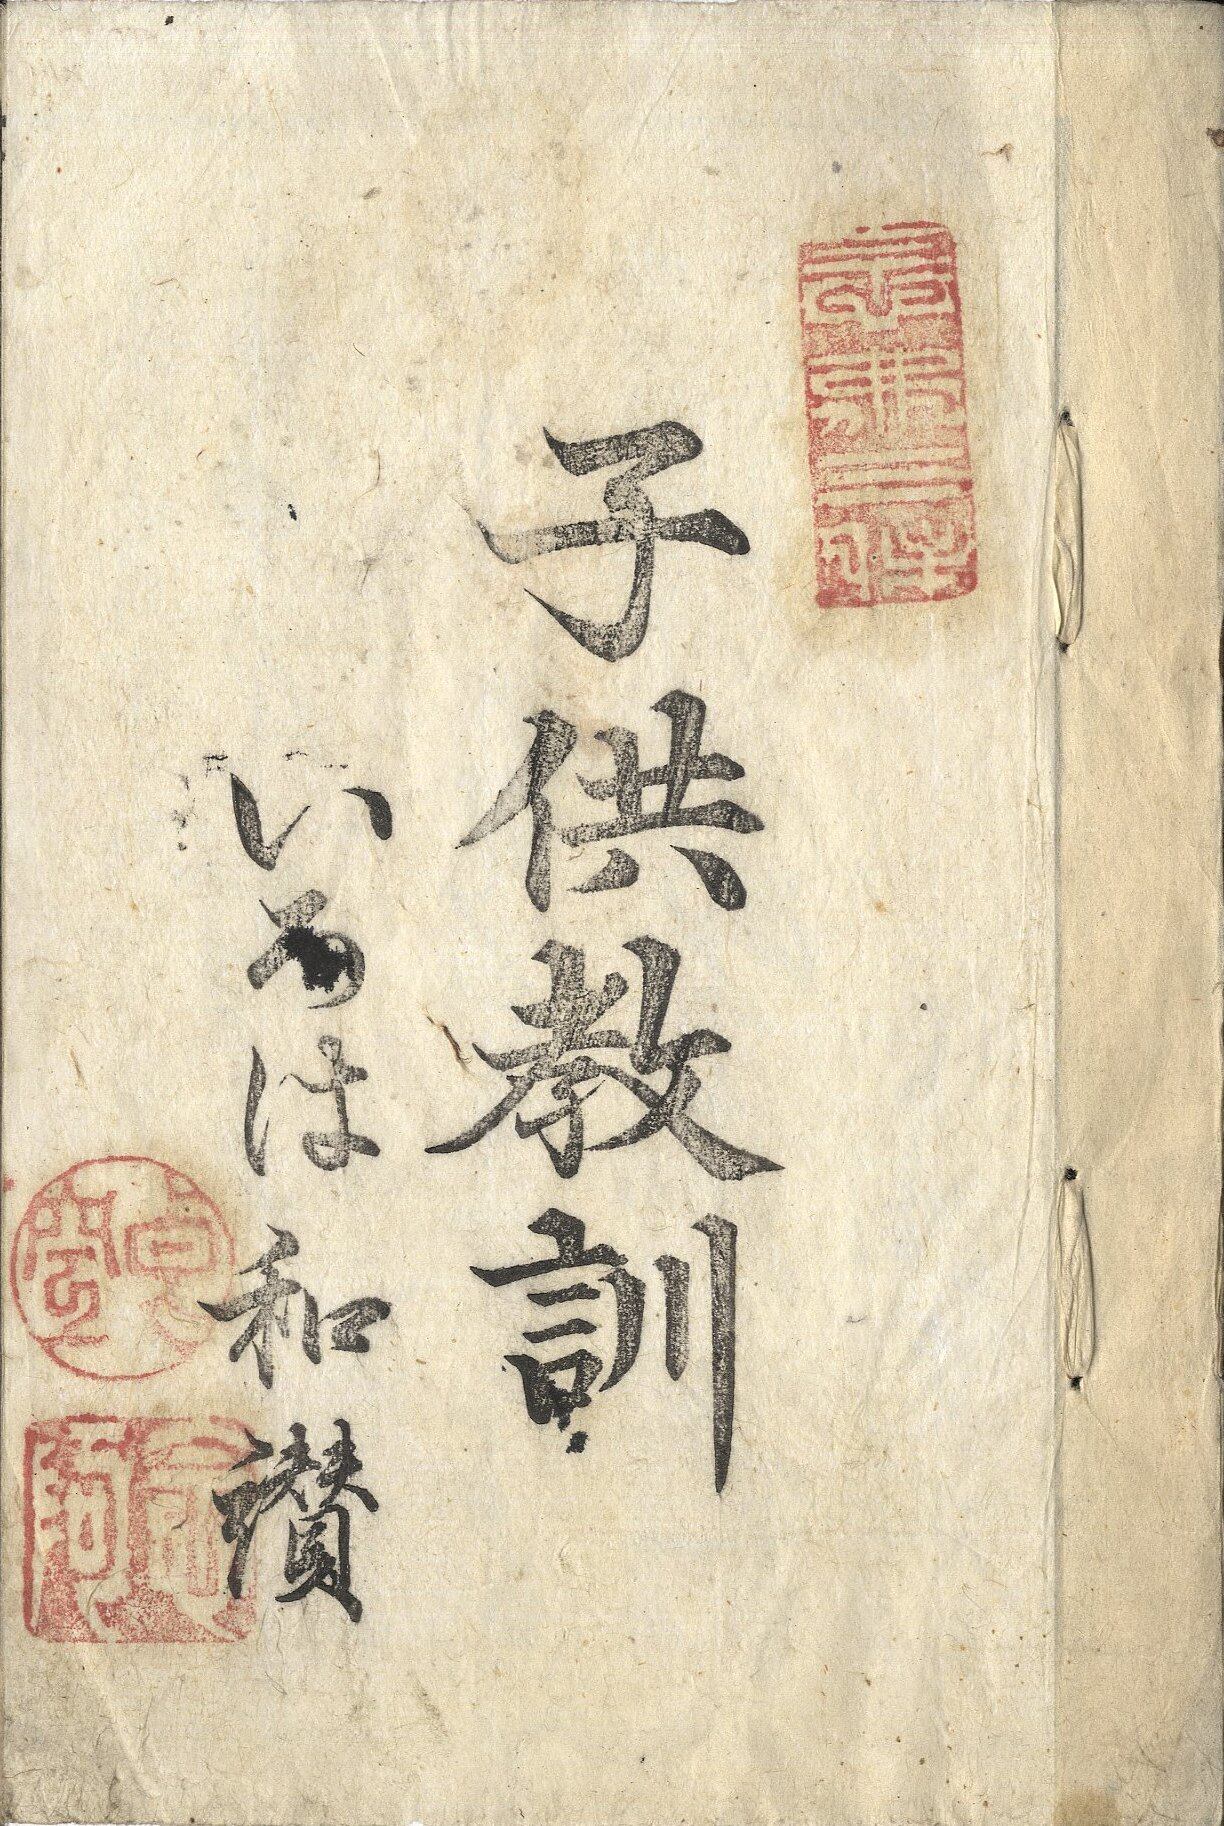 子供教訓
いろは和讃